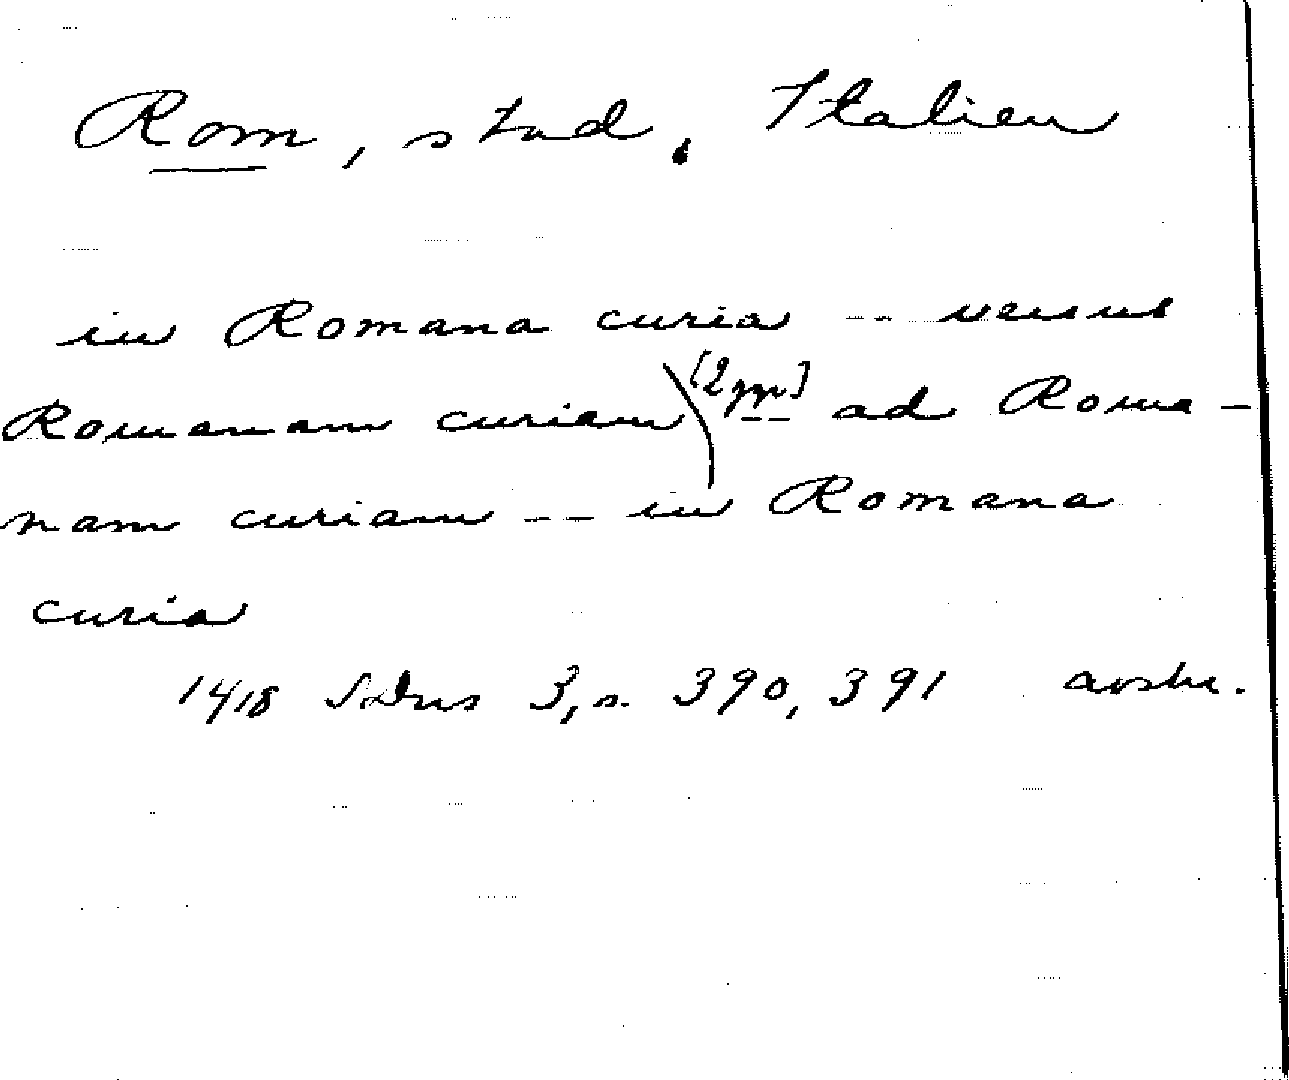 Rom, stad, Italien
in Romana curia -- versus
Romanam curiam [2 ggr] -- ad Roma-
nam curiam -- in Romana
curia
1418 SDns 3, s. 390, 391 avskr.